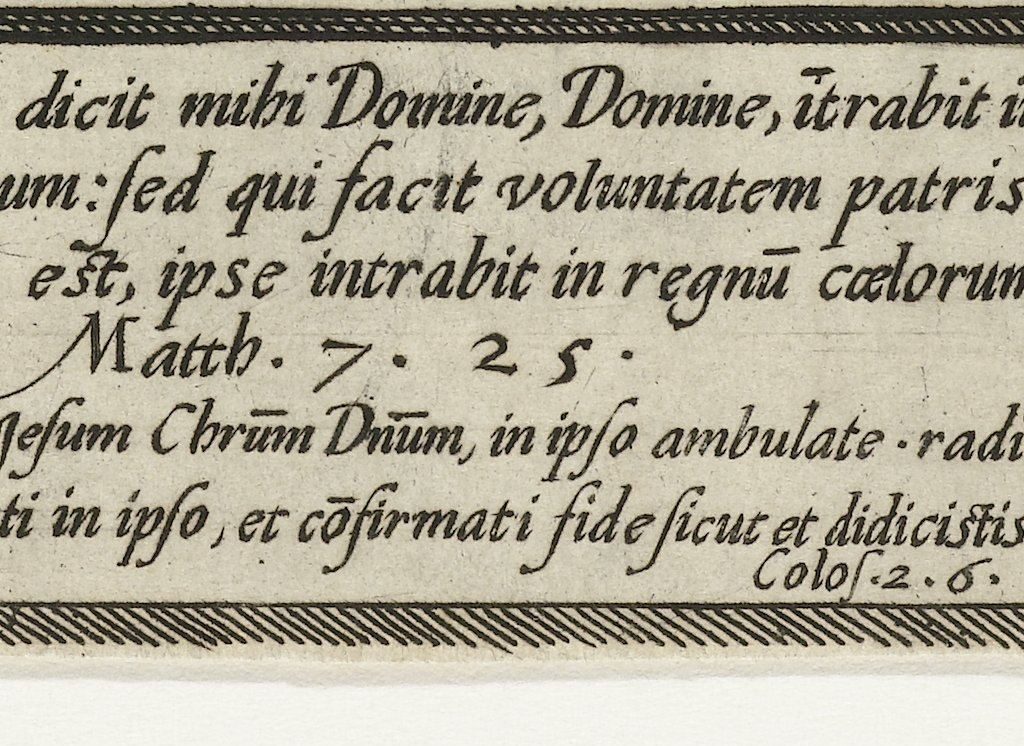 dicit mihi Domine, Domine, ītrabit i
um: ſed qui facit voluntatem patris
est, ipse intrabit in regnū cœlorum
Matth. 7. 25.
Jeſum Chrūm Dnūm, in ipſo ambulate. radi
ti in ipſo, et cōfirmati fide ſicut et didicistis
Coloſ. 2. 6.